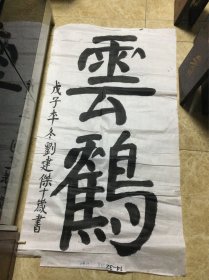 雲鶴
戊子年冬劉建傑十歲書